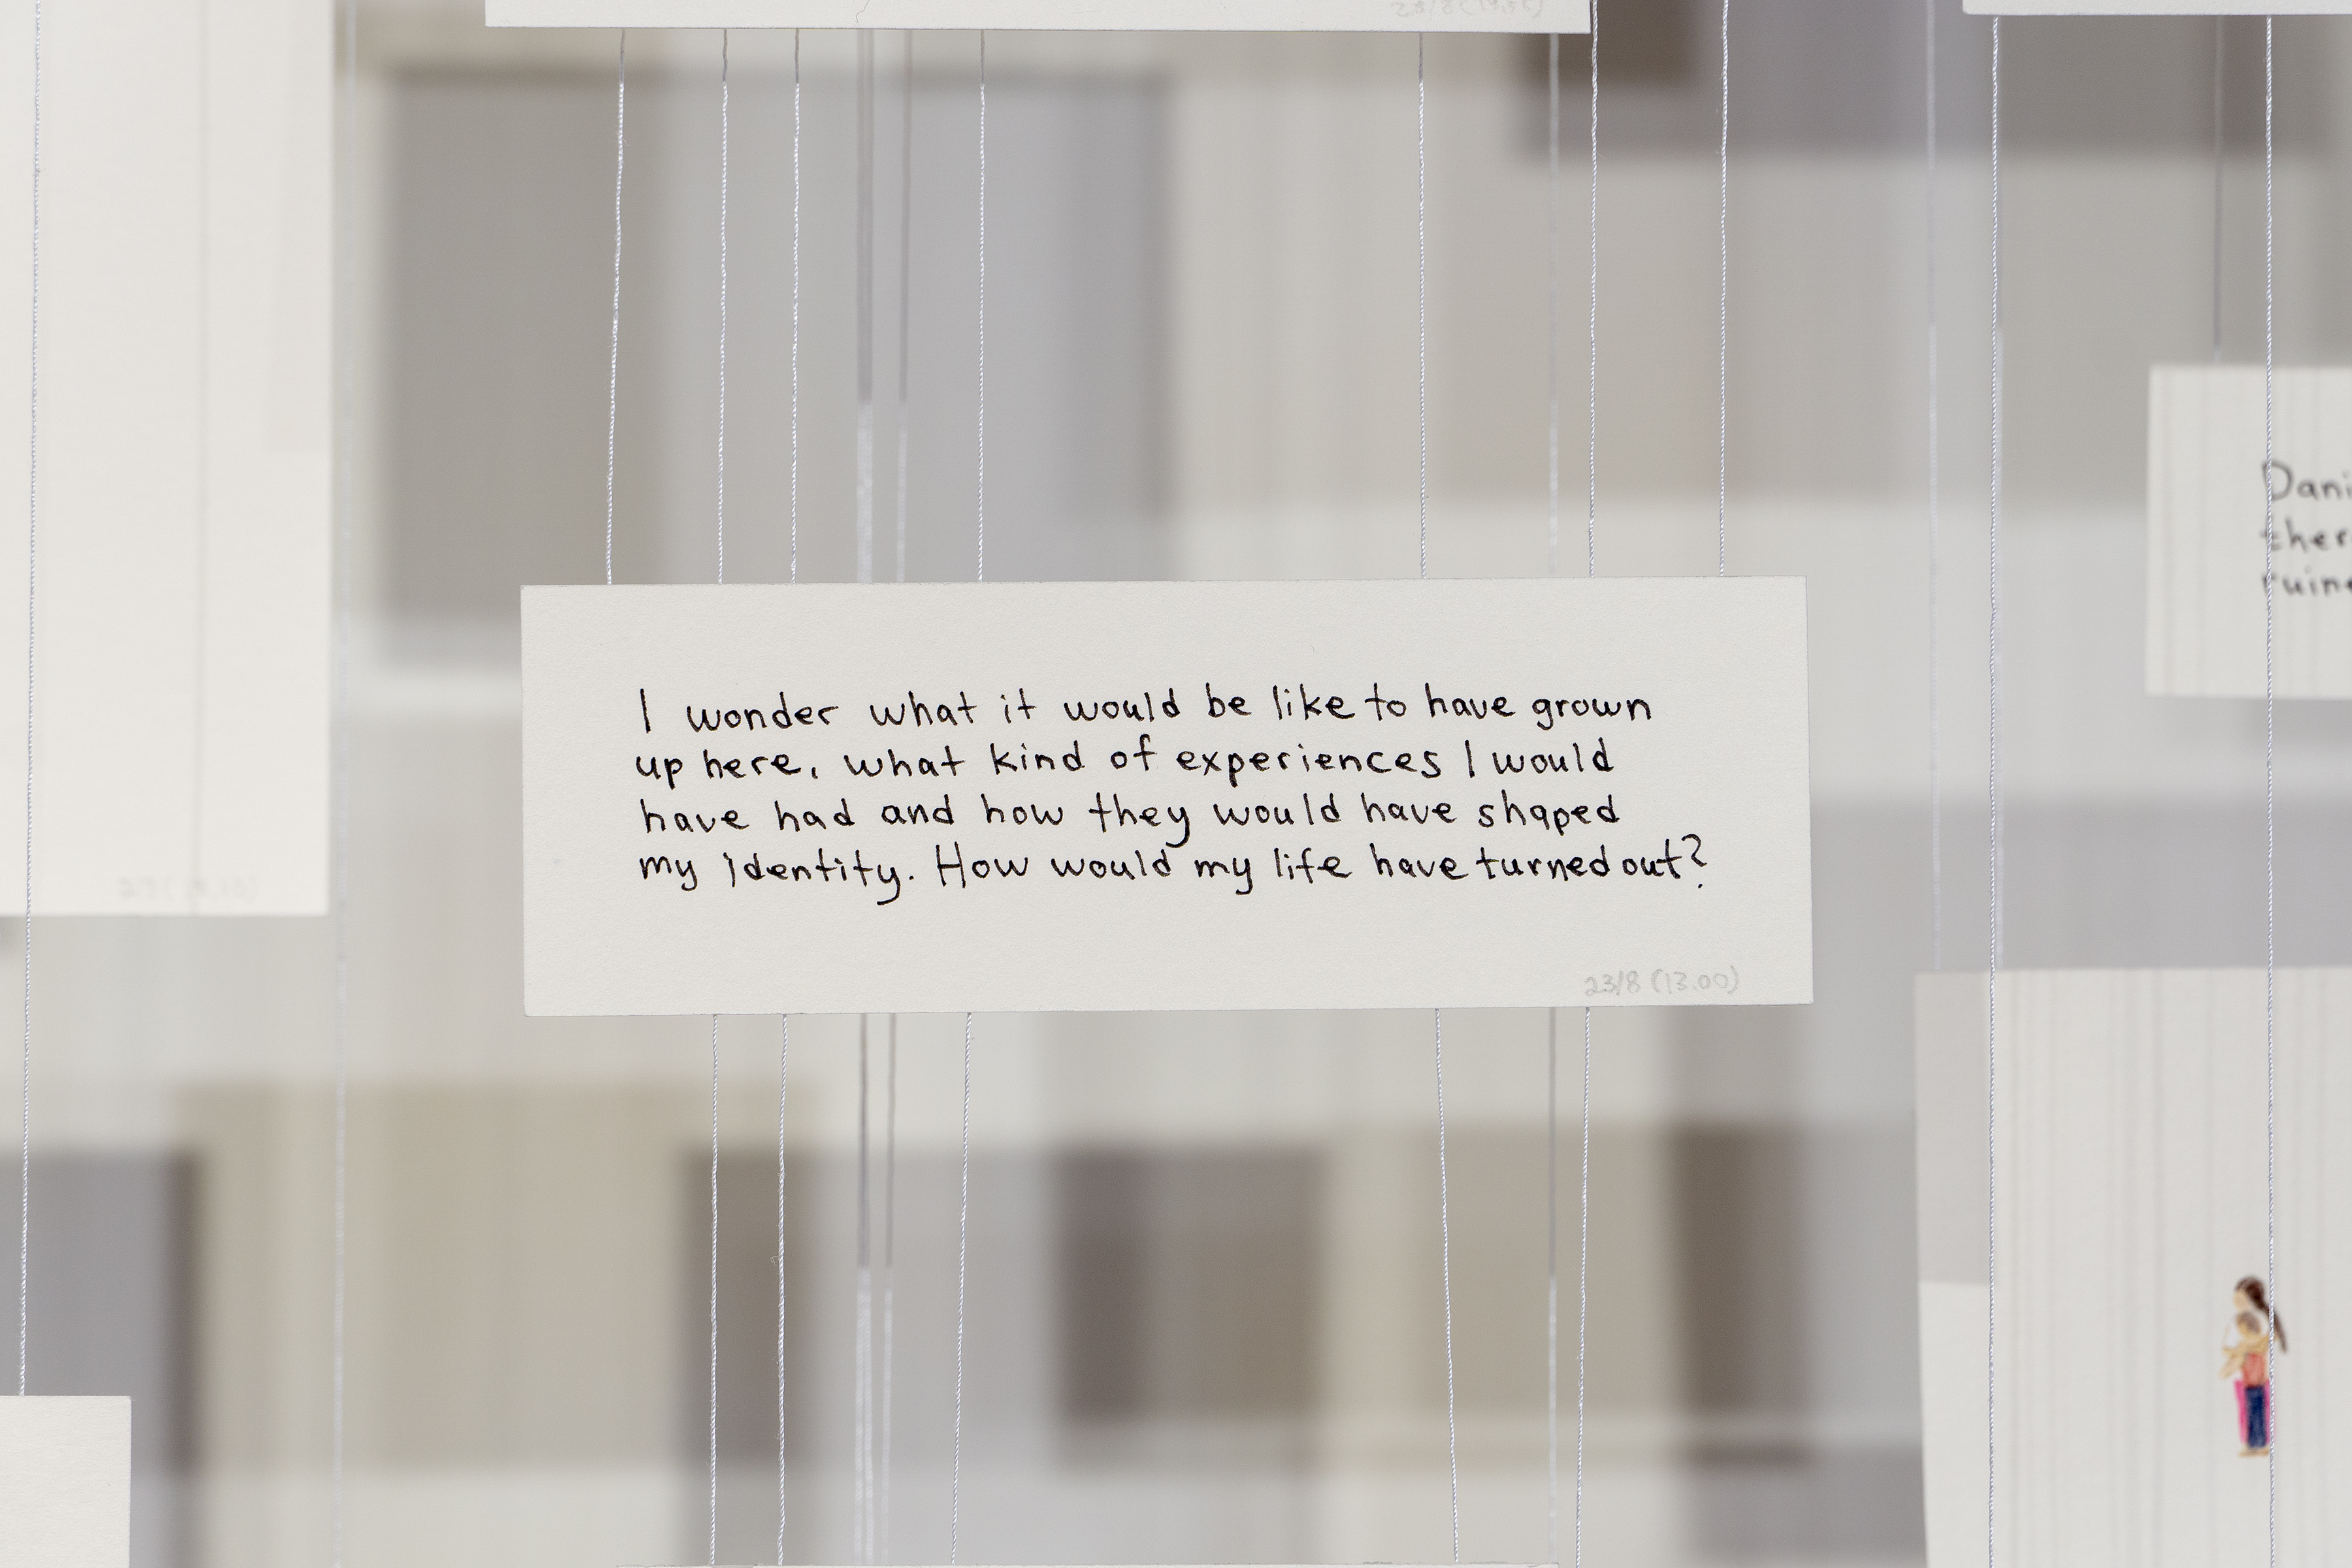 I wonder what it would be like to have grown
up here, what kind of experiences I would
have had and how they would have shaped
my identity. How would my life have turned out?
23/8 (13.00)
Dani
ther
ruine